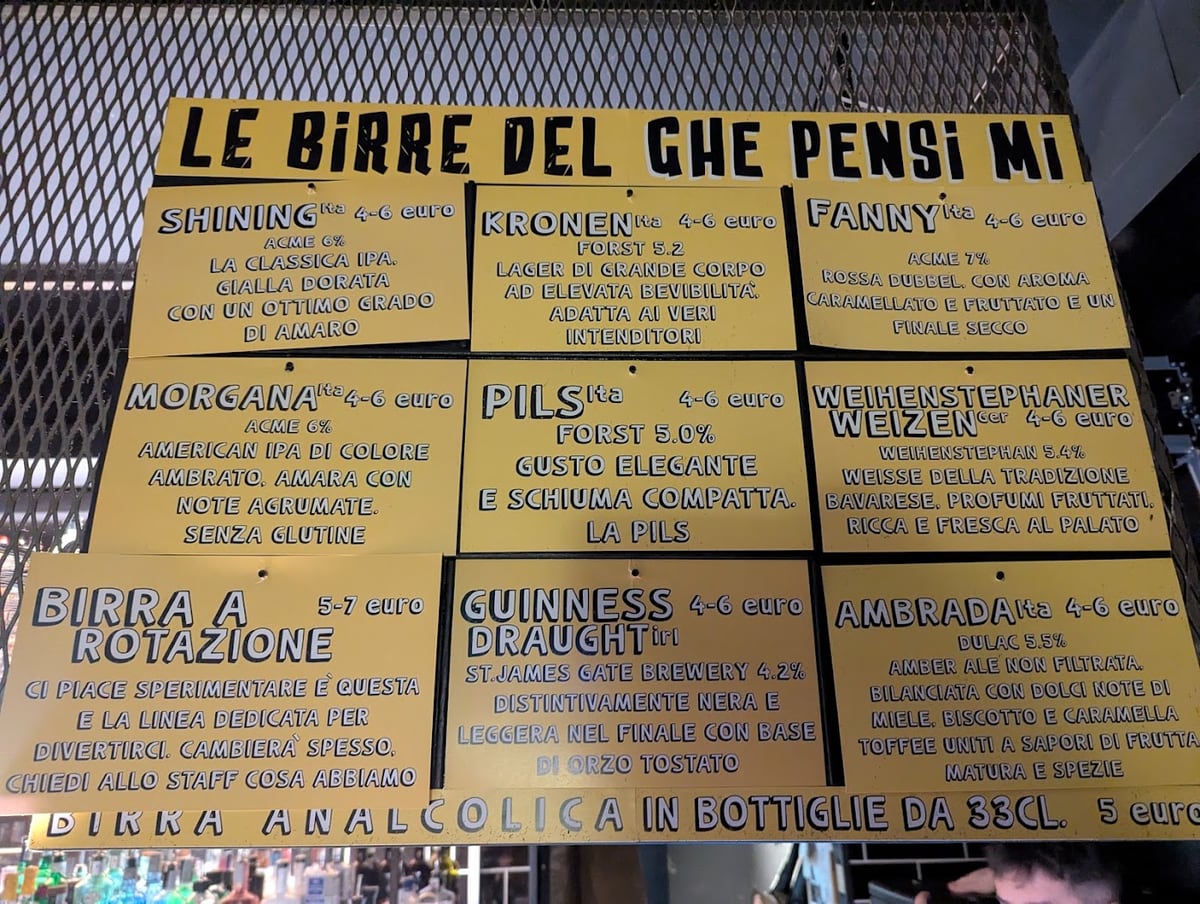 LE BiRRE DEL GHE PENSi Mi
SHINING Ita 4-6 euro
ACME 6%
LA CLASSICA IPA.
GIALLA DORATA
CON UN OTTIMO GRADO
DI AMARO
KRONEN Ita 4-6 euro
FORST 5.2
LAGER DI GRANDE CORPO
AD ELEVATA BEVIBILITA'.
ADATTA AI VERI
INTENDITORI
FANNY Ita 4-6 euro
ACME 7%
ROSSA DUBBEL, CON AROMA
CARAMELLATO E FRUTTATO E UN
FINALE SECCO
MORGANA Ita 4-6 euro
ACME 6%
AMERICAN IPA DI COLORE
AMBRATO. AMARA CON
NOTE AGRUMATE.
SENZA GLUTINE
PILS Ita 4-6 euro
FORST 5.0%
GUSTO ELEGANTE
E SCHIUMA COMPATTA.
LA PILS
WEIHENSTEPHANER
WEIZEN Ger 4-6 euro
WEIHENSTEPHAN 5.4%
WEISSE DELLA TRADIZIONE
BAVARESE. PROFUMI FRUTTATI,
RICCA E FRESCA AL PALATO
BIRRA A 5-7 euro
ROTAZIONE
CI PIACE SPERIMENTARE E' QUESTA
E LA LINEA DEDICATA PER
DIVERTIRCI. CAMBIERA' SPESSO,
CHIEDI ALLO STAFF COSA ABBIAMO
GUINNESS 4-6 euro
DRAUGHT irl
ST.JAMES GATE BREWERY 4.2%
DISTINTIVAMENTE NERA E
LEGGERA NEL FINALE CON BASE
DI ORZO TOSTATO
AMBRADA Ita 4-6 euro
DULAC 5.5%
AMBER ALE NON FILTRATA,
BILANCIATA CON DOLCI NOTE DI
MIELE, BISCOTTO E CARAMELLA
TOFFEE UNITI A SAPORI DI FRUTTA
MATURA E SPEZIE
BIRRA ANALCOLICA IN BOTTIGLIE DA 33CL. 5 euro